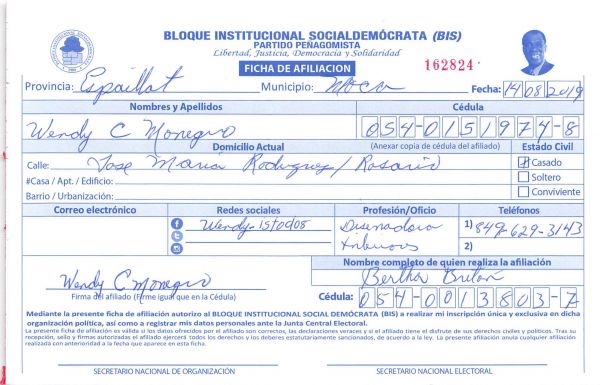 BLOQUE INSTITUCIONAL SOCIALDEMÓCRATA (BIS)
PARTIDO PEÑAGOMISTA
Libertad, Justicia, Democracia y Solidaridad
FICHA DE AFILIACION
162824
Provincia: Espaillat Municipio: Moca Fecha: 14/08/2019
Nombres y Apellidos Cédula
Wendy C Monegro 054-0151974-8
Domicilio Actual (Anexar copia de cédula del afiliado) Estado Civil
Calle: Jose Maria Rodriguez / Rosario Casado
#Casa / Apt. / Edificio: Soltero
Barrio / Urbanización: Conviviente
Correo electrónico Redes sociales Profesión/Oficio Teléfonos
Wendy Diseñadora 1) 849-629-3143
2)
Nombre completo de quien realiza la afiliación
Wendy C Monegro Bertha
Firma del afiliado (Firme igual que en la Cédula) Cédula: 054-0013803-
Mediante la presente ficha de afiliación autorizo al BLOQUE INSTITUCIONAL SOCIAL DEMÓCRATA (BIS) a realizar mi inscripción única y exclusiva en dicha
organización política, así como a registrar mis datos personales ante la Junta Central Electoral.
La presente ficha de afiliación es válida si los datos ofrecidos por el afiliado son correctos, las declaraciones veraces y si el afiliado tiene el disfrute de sus derechos civiles y políticos. Tras su
recepción, sello y firmas autorizadas el afiliado ejercerá todos los derechos y los deberes estatutariamente sancionados, de acuerdo a la ley. La presente afiliación anula cualquier afiliación
realizada con anterioridad a la fecha que aparece en esta ficha.
SECRETARIO NACIONAL DE ORGANIZACIÓN SECRETARIO NACIONAL ELECTORAL